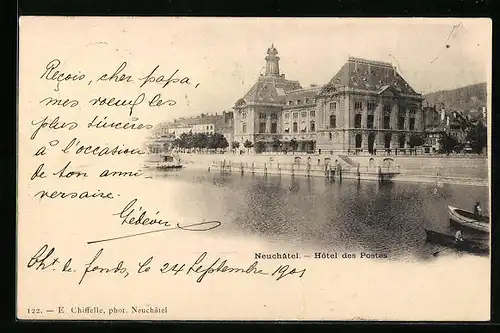 Reçois, cher papa,
mes voeux les
plus sincères
à l'occasion
de ton anni-
versaire.
Gédéon
Neuchâtel. – Hôtel des Postes
Cht. de fonds, le 24 Septembre 1901
122. – E. Chiffelle, phot. Neuchâtel